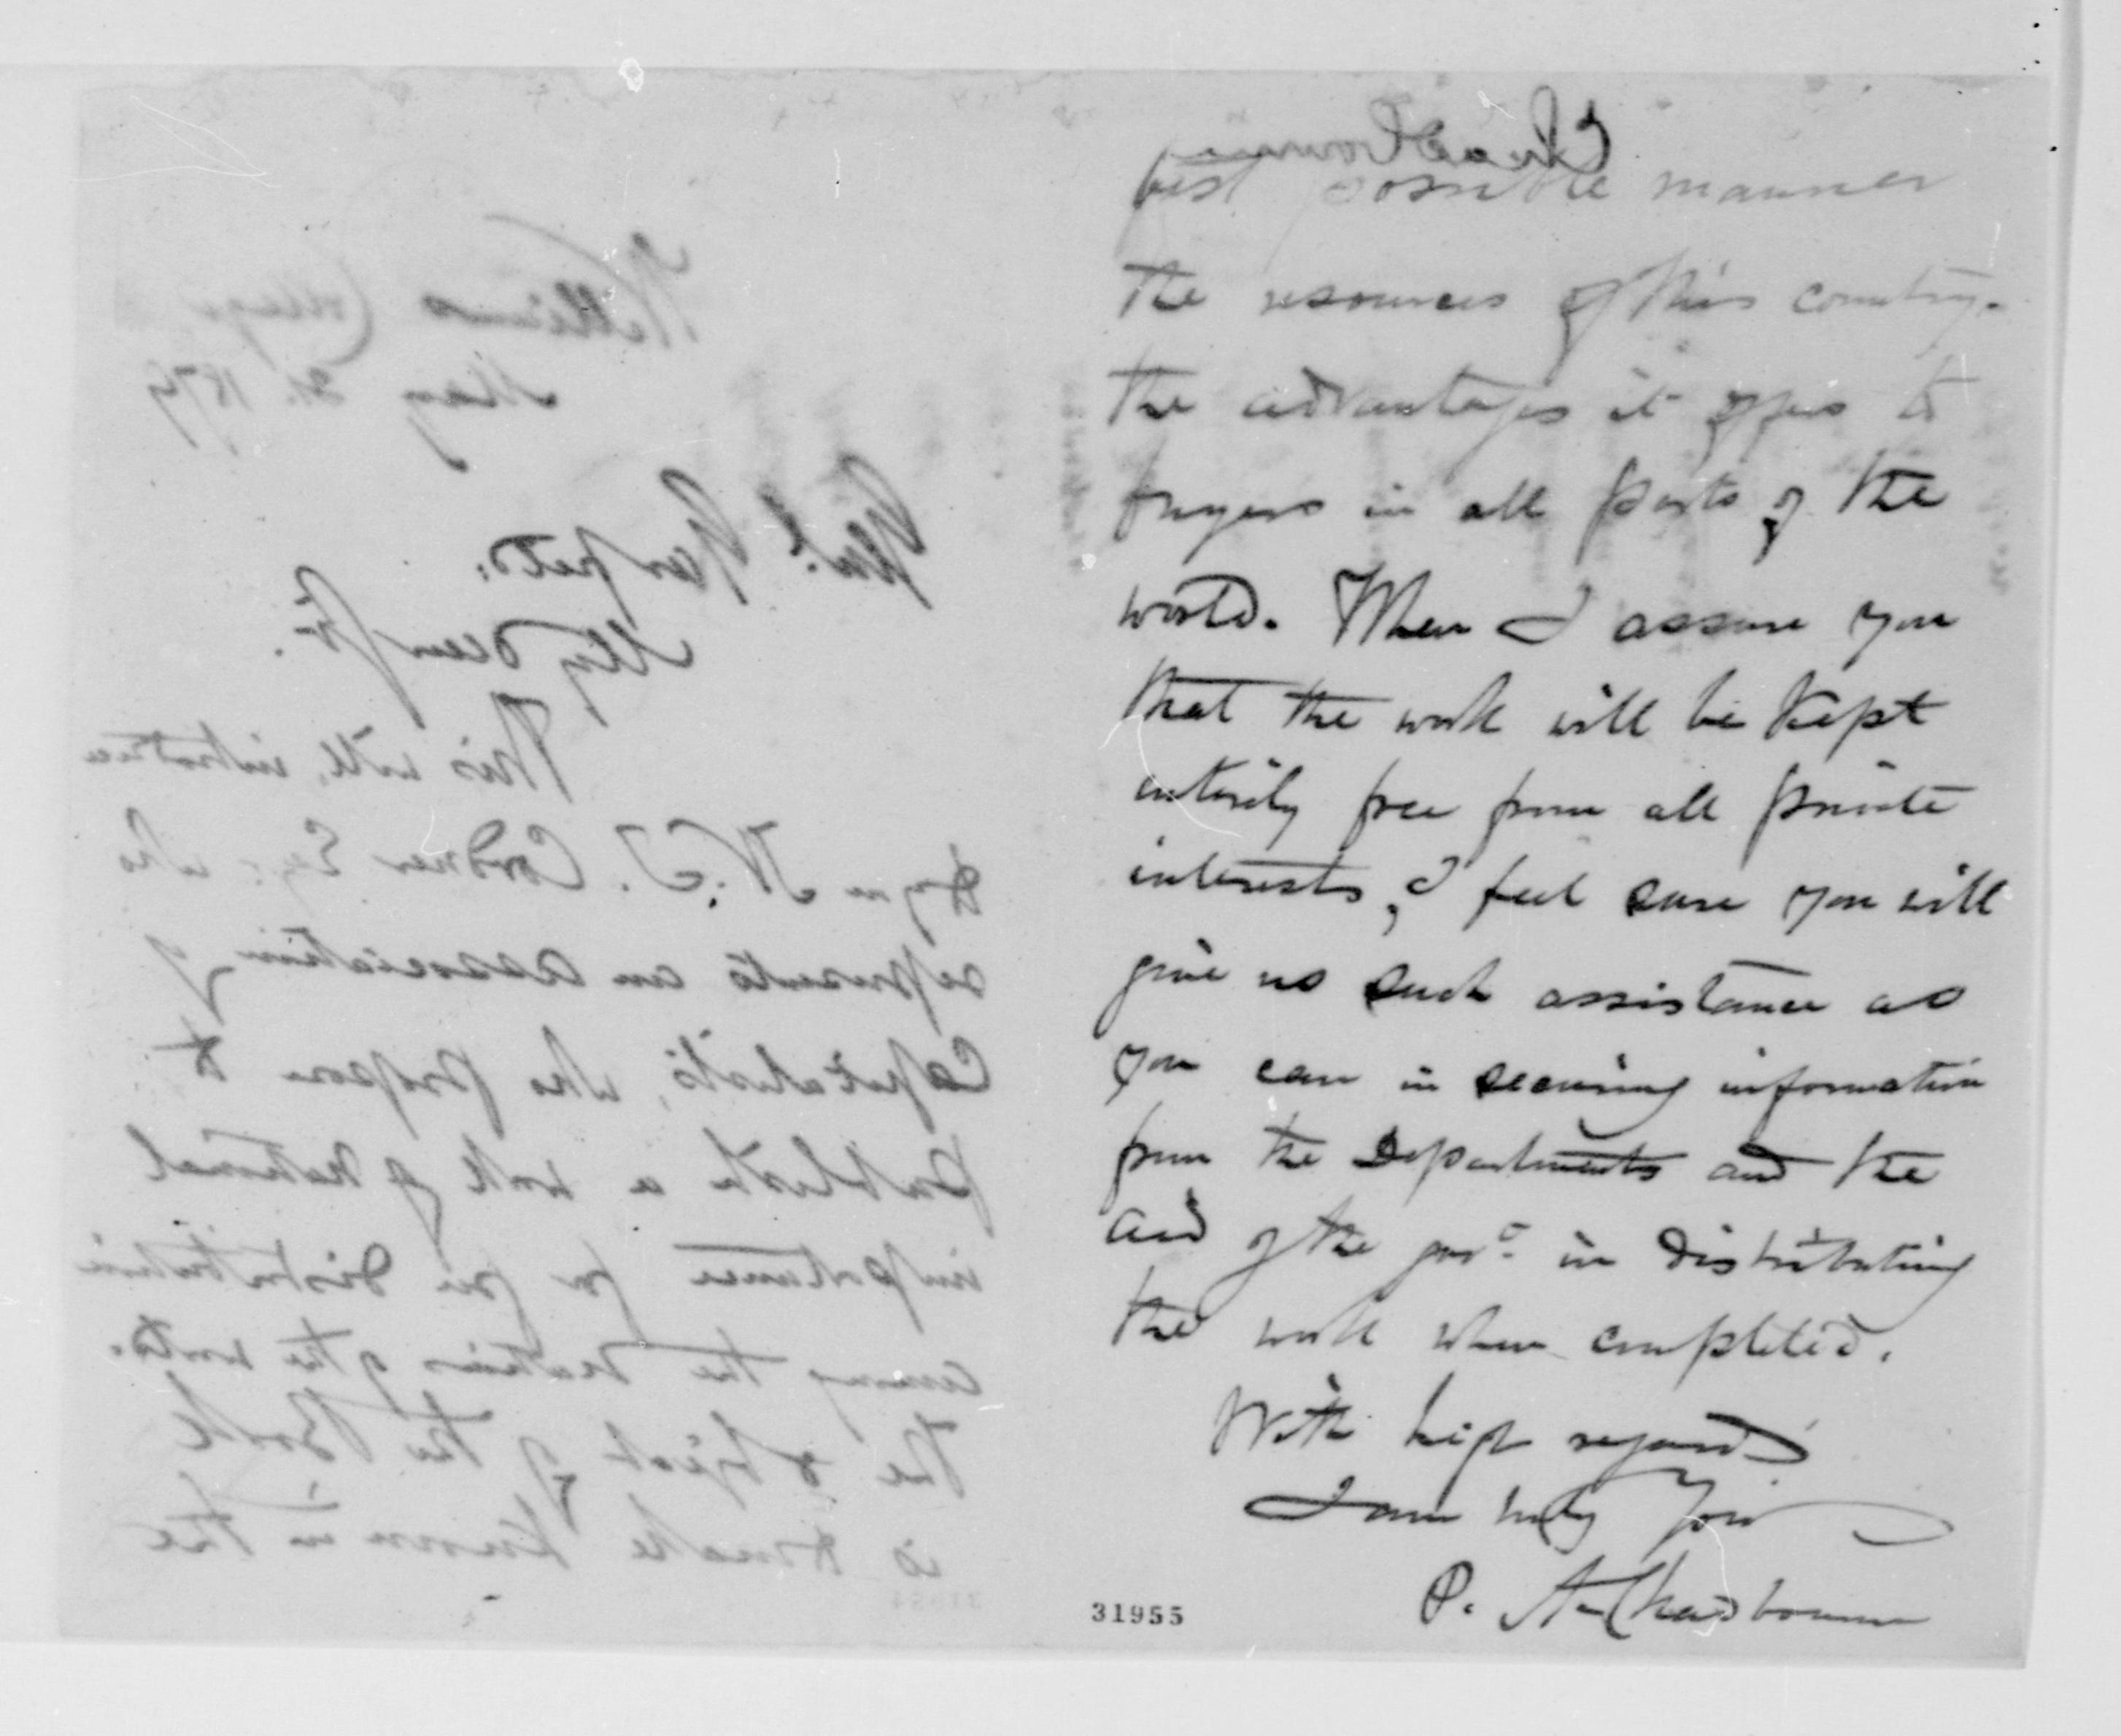 Williams College
May 21. 1879
Genl. Garfield,
My dear Sir.
This will introduce
to you N. J. Cordner Esq. who
represents an association of
Capitalists, who propose to
publish a work of National
importance for distribution
among the Nations of the world.
The object of the Book
is to make known in the
Chadbourne
best possible manner
the resources of this country.
the advantages it offers to
buyers in all parts of the
world. When I assure you
that the work will be kept
entirely free from all private
interests, I feel sure you will
give us such assistance as
you can in securing information
from the Departments and the
aid of the govt. in distributing
the work when completed.
With high regard
I am truly Yours
P. A. Chadbourne
31955